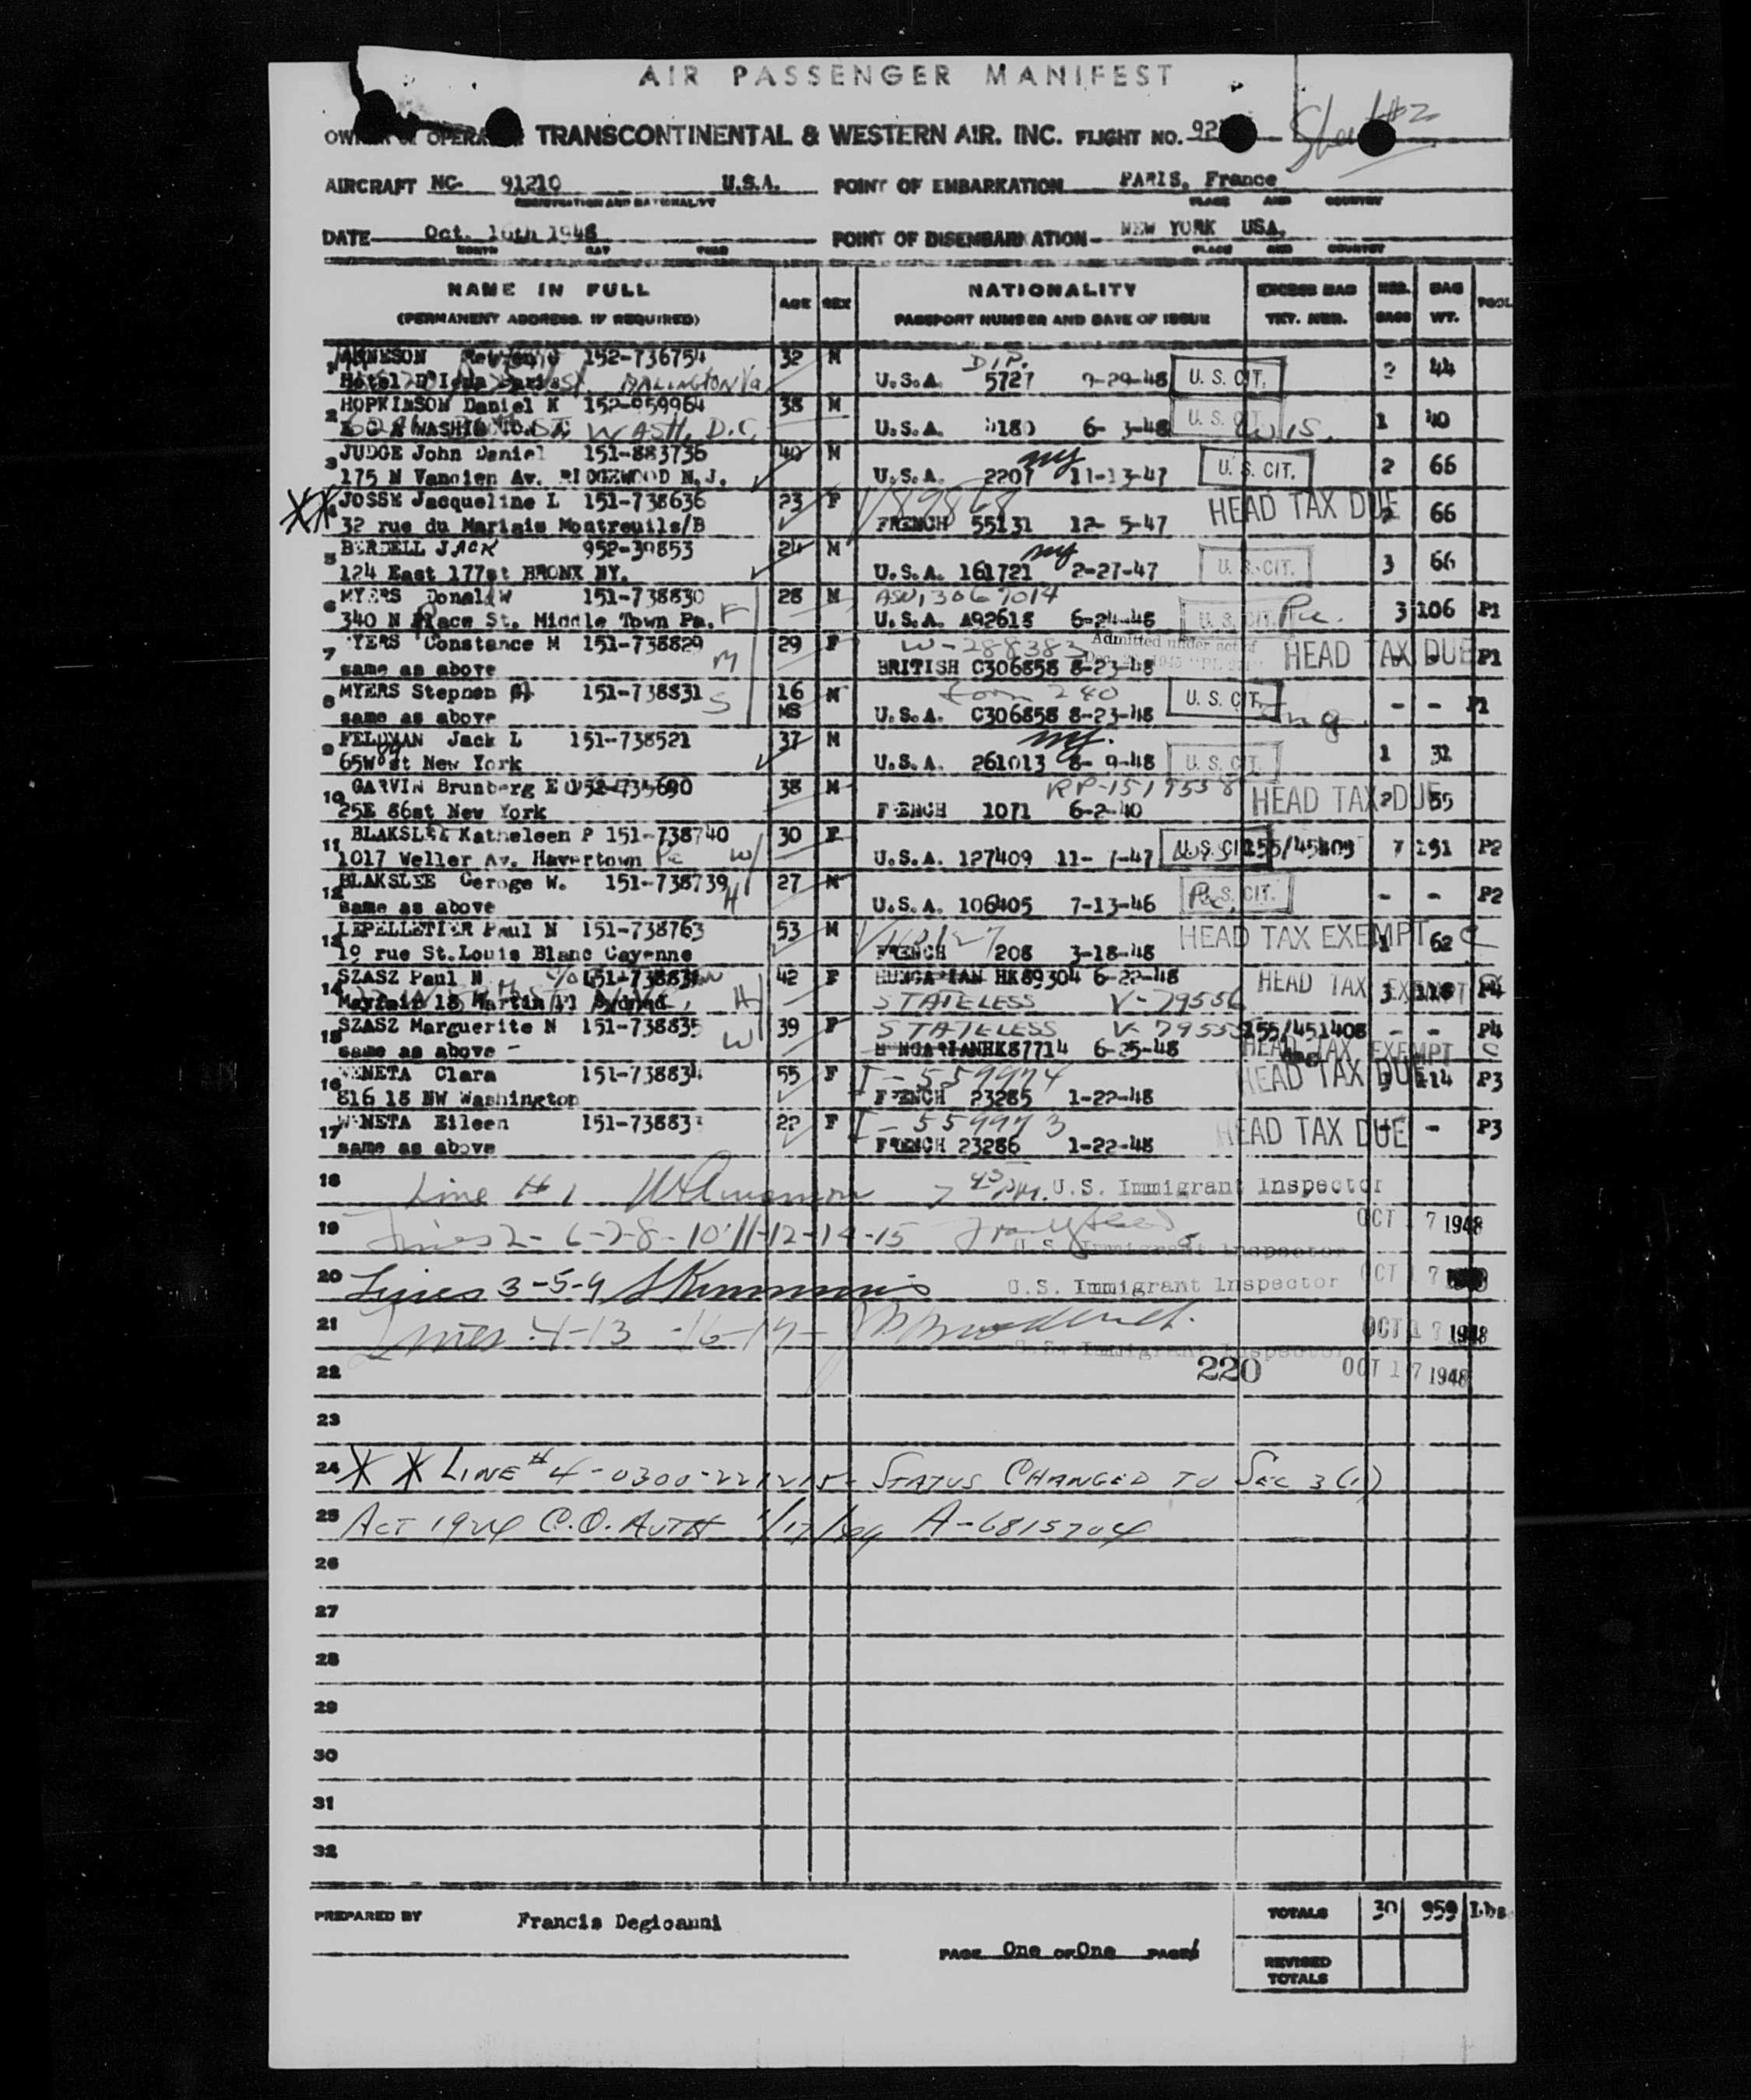 AIR PASSENGER MANIFEST
Sheet #2
TRANSCONTINENTAL & WESTERN AIR. INC. FLIGHT NO. 92
AIRCRAFT NC- 91210 U.S.A. POINT OF EMBARKATION PARIS, France
REGISTRATION AND NATIONALITY PLACE AND COUNTRY
DATE Oct. 16th 1948 POINT OF DISEMBARKATION NEW YORK USA.
MONTH DAY YEAR PLACE AND COUNTRY
NAME IN FULL AGE SEX NATIONALITY EXCESS BAG NBR. BAG POOL
(PERMANENT ADDRESS. IF REQUIRED) PASSPORT NUMBER AND DATE OF ISSUE TKT. NUM. BAGS WT.
1 152-736754 32 M DIP.
ARLINGTON Va U.S.A. 5727 9-29-48 U. S. CIT. 2 44
2 HOPKINSON Daniel K 152-959964 38 M
WASH, D.C. U.S.A. 6- 3-48 U. S. 1 40
3 JUDGE John Daniel 151-883736 40 M ny
175 N Vannien Av. RIDGEWOOD N.J. U.S.A. 2207 11-13-47 U. S. CIT. 2 66
XX 4 JOSSE Jacqueline L 151-738636 23 F
32 rue du Mariais Montreuils/B FRENCH 55131 12- 5-47 HEAD TAX DUE 66
5 BERDELL JACK 952-30853 24 M ny
124 East 177st BRONX NY. U.S.A. 161721 2-27-47 U. S. CIT. 3 66
6 MYERS Donald W 151-738830 28 M ASN13067014
340 N Place St. Middle Town Pa. F U.S.A. A92618 6-24-48 U. S. CIT. Pa. 3 106 P1
7 MYERS Constance M 151-738829 29 F W-288383 Admitted under act of
same as above M BRITISH C306858 8-23-48 HEAD TAX DUE P1
8 MYERS Stephen 151-738831 S 16 MS M form 240
same as above U.S.A. C306858 8-23-48 U. S. CIT. Eng - - P1
9 FELDMAN Jack L 151-738521 37 M ny.
65W 89 st New York U.S.A. 261013 8- 9-48 U. S. CIT. 1 31
10 GARVIN Brunberg E 38 M RP-1519558
25E 86st New York FRENCH 1071 6-2-40 HEAD TAX DUE 2 55
11 BLAKSLEE Katheleen P 151-738740 30 F
1017 Weller Av. Havertown Pa W U.S.A. 127409 11- 7-47 U. S. CIT. 7 151 P2
12 BLAKSLEE Geroge W. 151-738739 H 27 M
same as above U.S.A. 106405 7-13-46 Pa. U. S. CIT. - - P2
13 LEPELLETIER Paul N 151-738763 53 M
19 rue St.Louis Blanc Cayenne FRENCH 208 3-18-48 HEAD TAX EXEMPT 1 62 C
14 SZASZ Paul N c/o 42 F HUNGARIAN HK89304 6-22-48
H STATELESS V-79556 HEAD TAX EXEMPT 3 P4
15 SZASZ Marguerite N 151-738835 W 39 F STATELESS V-79555 155/451408 - - P4
same as above - HUNGARIAN HK87714 6-25-48 HEAD TAX EXEMPT C
16 WENETA Clara 151-738834 55 F I-559974
816 18 NW Washington FRENCH 23285 1-22-48 HEAD TAX DUE 114 P3
17 WENETA Eileen 22 F I-559973
same as above FRENCH 23286 1-22-48 HEAD TAX DUE - P3
18 Line #1 7 45 PM. U.S. Immigrant Inspector
19 Lines 2-6-7-8-10-11-12-14-15 U.S. Immigrant Inspector OCT 17 1948
20 Lines 3-5-9 U.S. Immigrant Inspector OCT 17
21 Lines 4-13-16-17- U.S. Immigrant Inspector OCT 17 1948
22 220 OCT 17 1948
23
24 XX LINE #4-0300-221215- STATUS CHANGED TO SEC 3(1)
25 ACT 1924 C.O. AUTH A-6815704
26
27
28
29
30
31
32
PREPARED BY Francis Degioanni TOTALS 30 959 Lbs.
PAGE One OF One PAGES
REVISED TOTALS